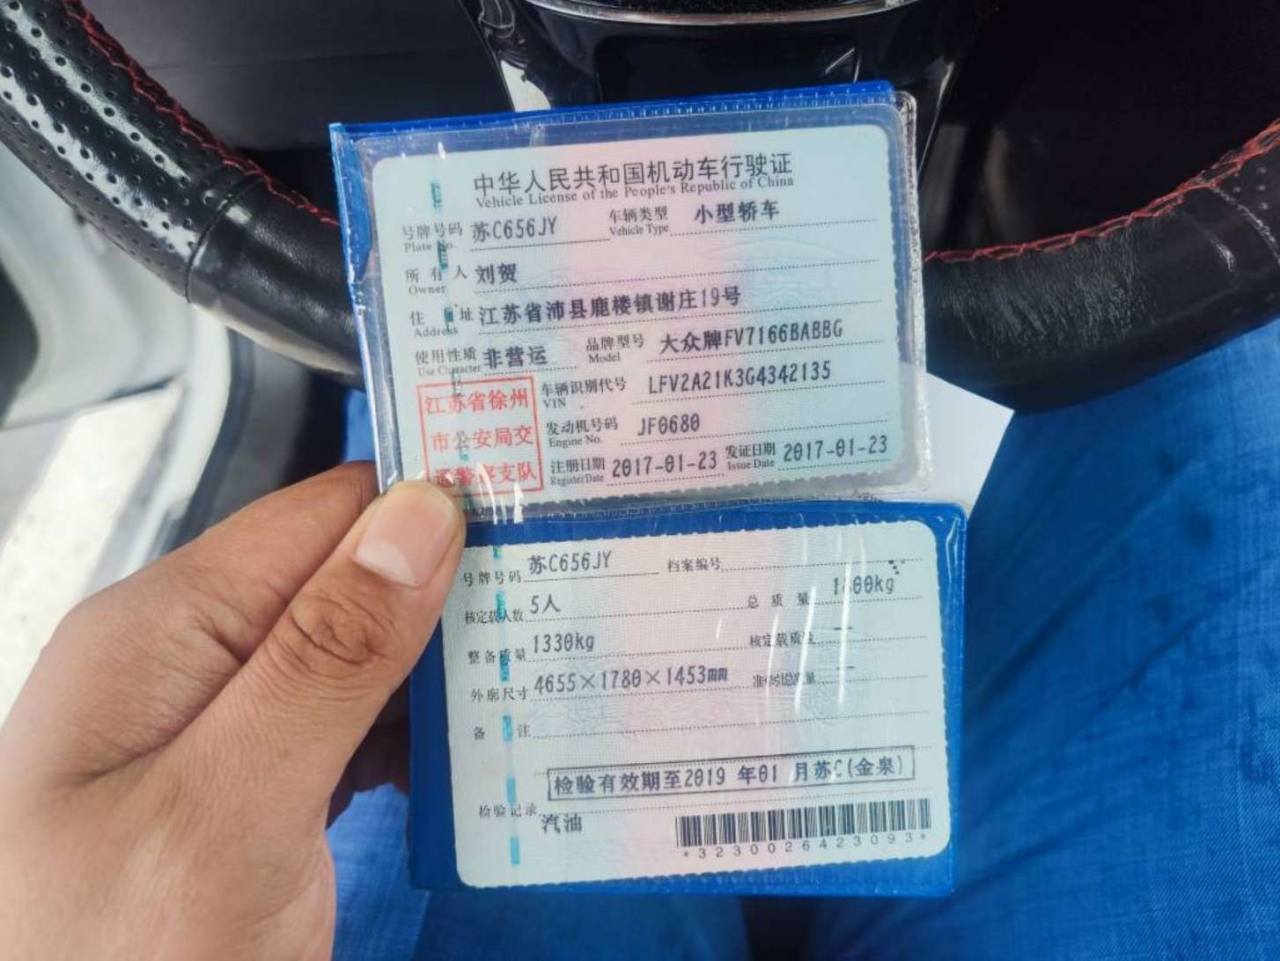 中华人民共和国机动车行驶证
Vehicle License of the People's Republic of China
号牌号码 苏C656JY 车辆类型 小型轿车
Plate No. Vehicle Type
所有人 刘贺
Owner
住址 江苏省沛县鹿楼镇谢庄19号
Address
使用性质 非营运 品牌型号 大众牌FV7166BABBG
Use Character Model
江苏省徐州
市公安局交
通警察支队
车辆识别代号 LFV2A21K3G4342135
VIN
发动机号码 JF0680
Engine No.
注册日期 2017-01-23 发证日期 2017-01-23
Register Date Issue Date
号牌号码 苏C656JY 档案编号
核定载人数 5人 总质量 1800kg
整备质量 1330kg 核定载质量 —
外廓尺寸 4655×1780×1453mm 准牵引总质量 —
备注
检验有效期至2019 年01 月苏C(金泉)
检验记录
汽油
*3230026423093*